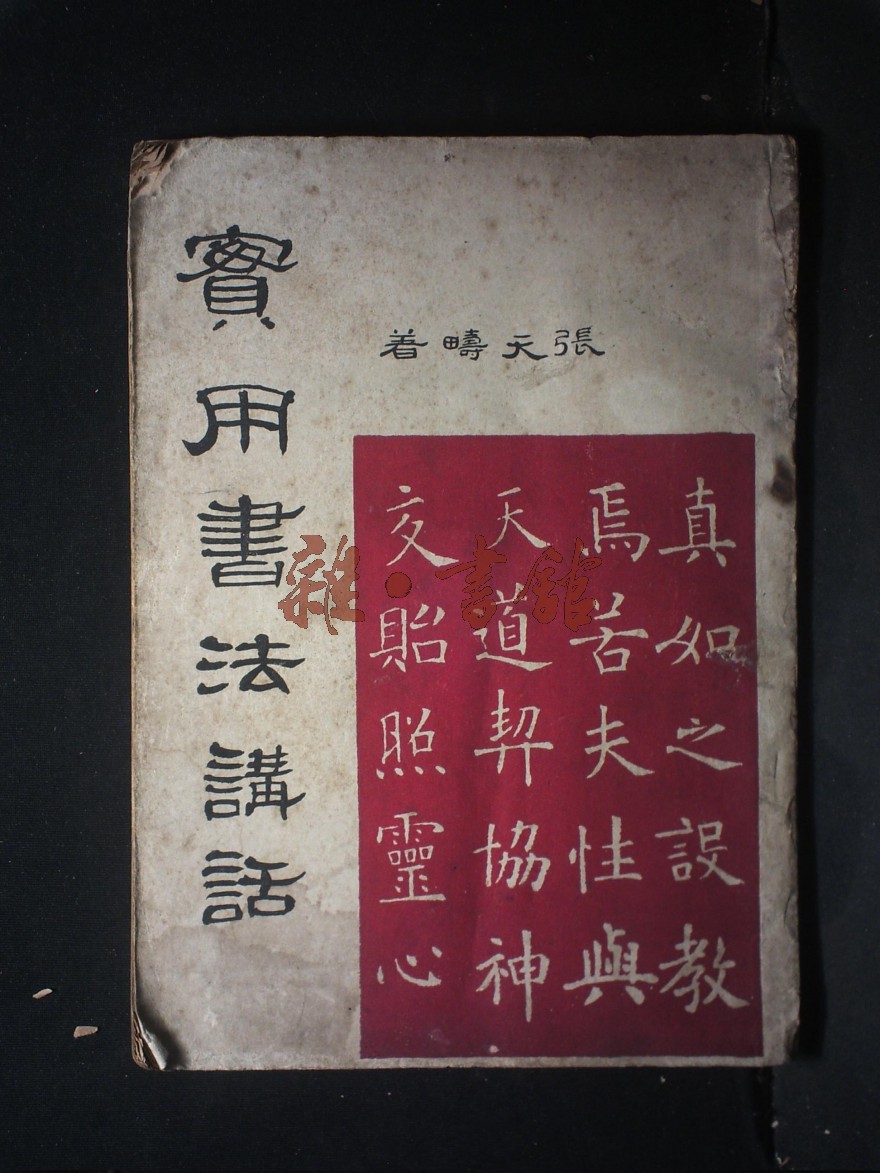 實用書法講話
張天疇著
真如之設教
焉若夫性與
天道契協神
交貽照靈心
雜·書館